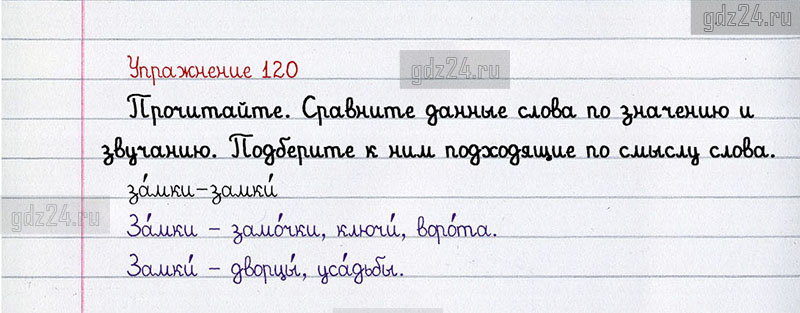 gdz24.ru
Упражнение 120
gdz24.ru
Прочитайте. Сравните данные слова по значению и
звучанию. Подберите к ним подходящие по смыслу слова.
за́мки-замки́
gdz24.ru
За́мки – замо́чки, ключи́, воро́та.
Замки́ – дворцы́, уса́дьбы.